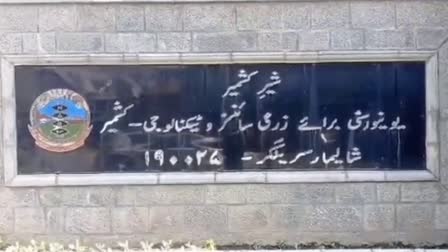 شیرِ کشمیر
یونیورسٹی برائے زرعی سائنسز و ٹیکنالوجی - کشمیر
شالیمار سرینگر - ۱۹۰۰۲۵